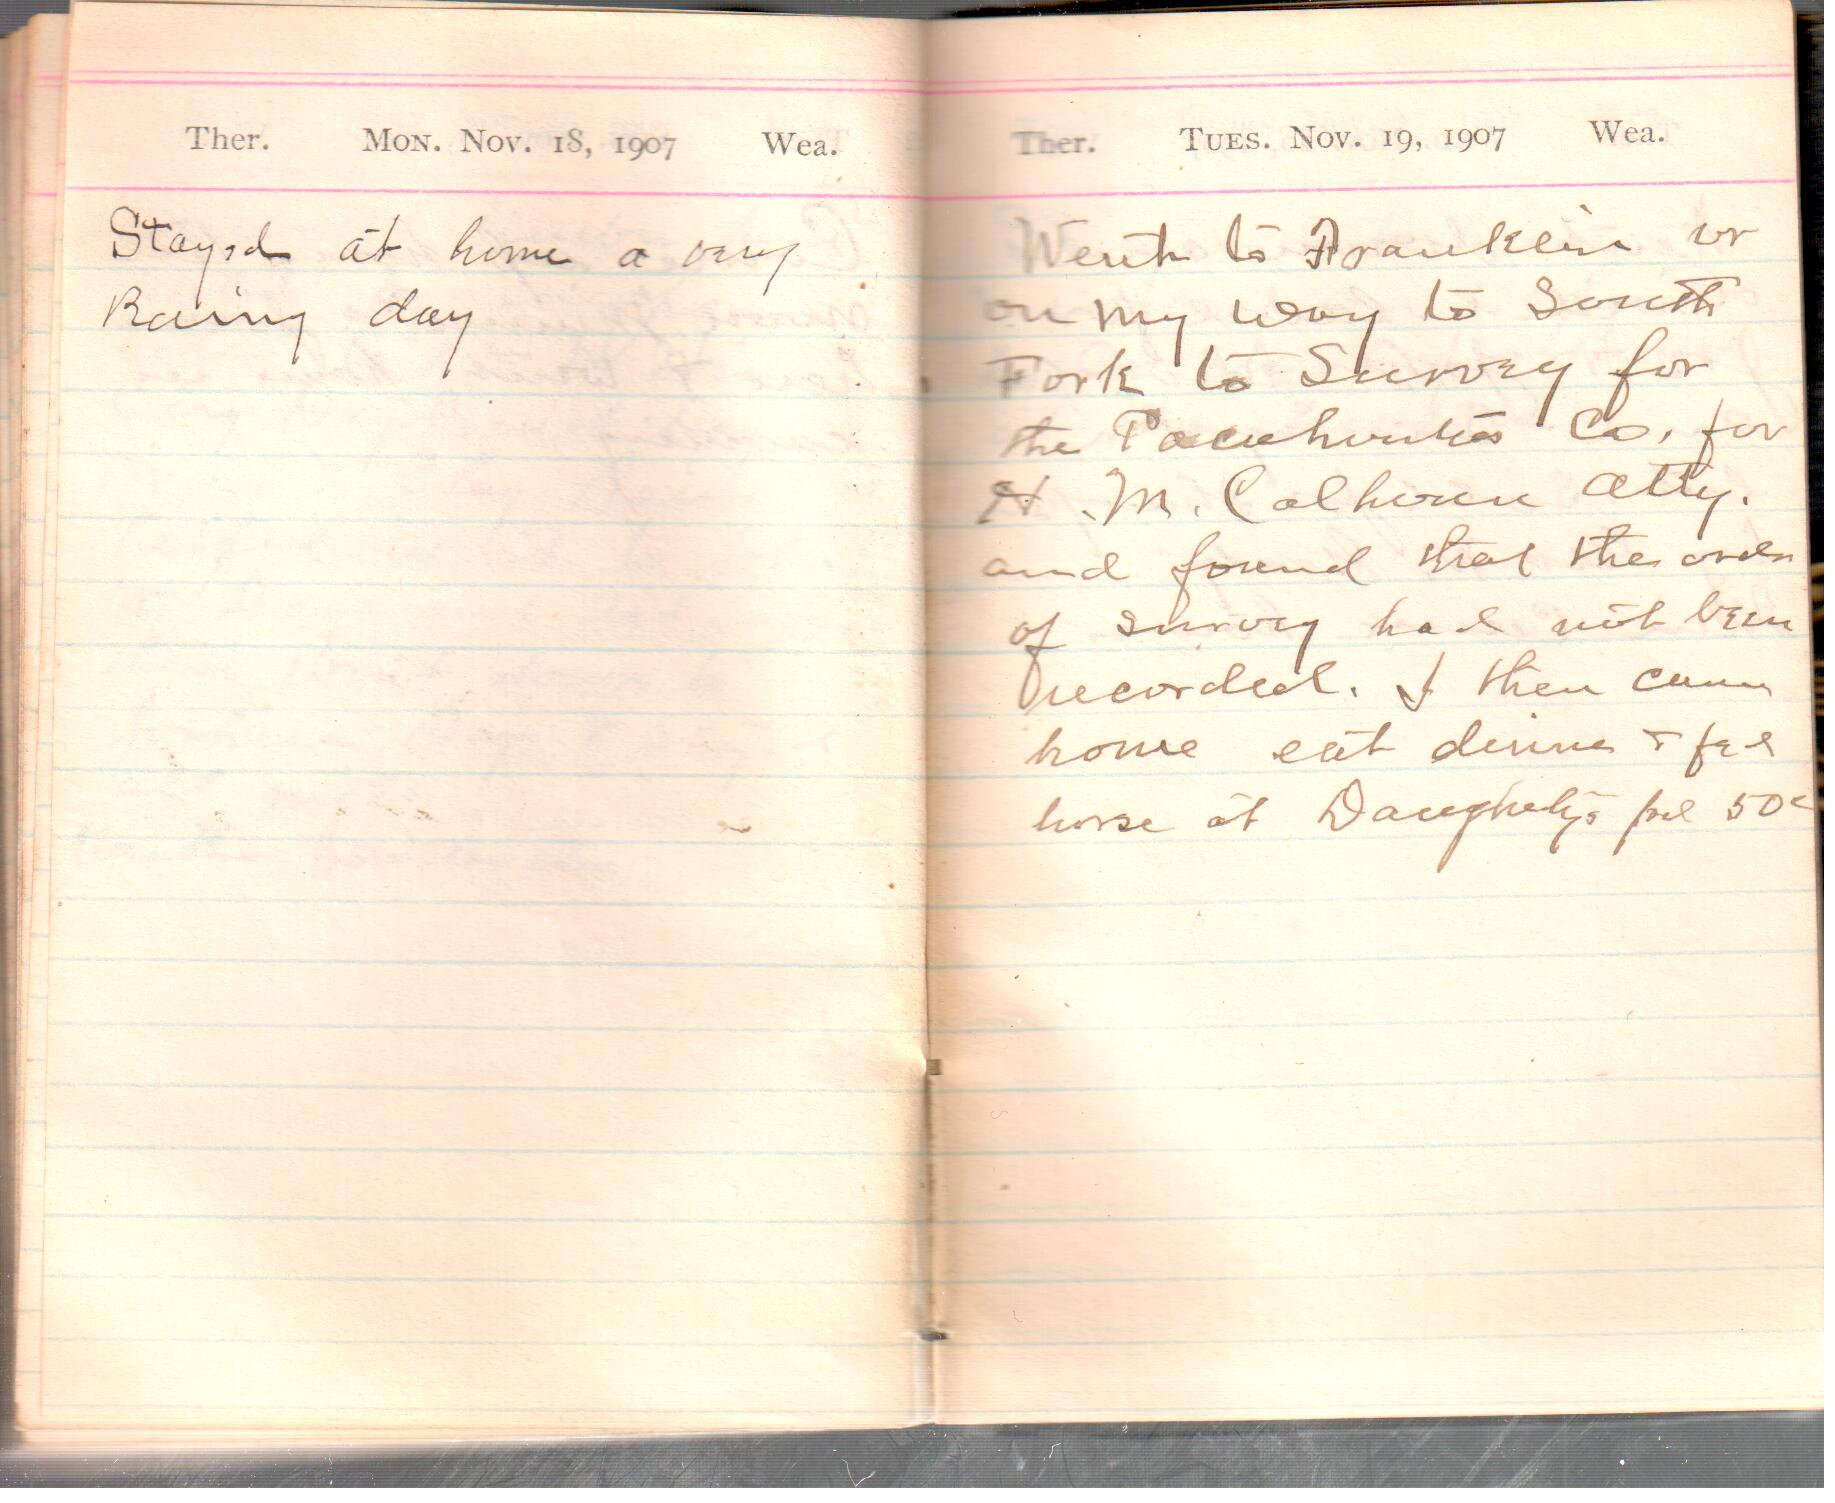 Ther. Mon. Nov. 18, 1907 Wea.
Stayed at home a very
Rainy day
Ther. Tues. Nov. 19, 1907 Wea.
Went to Franklin or
on my way to South
Fork to Survey for
the Pocahontas Co. for
H. M. Calhoun Atty.
and found that the order
of survey had not been
recorded. I then came
home eat dinner & fed
horse at Daughertys pd 50c